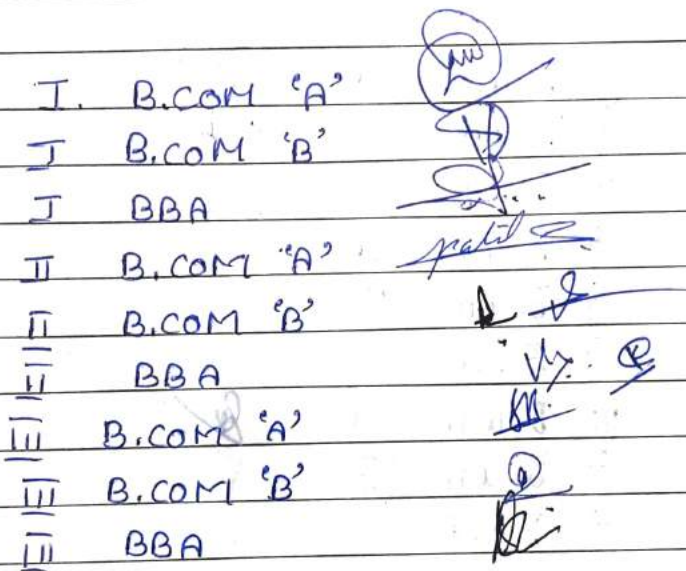 I. B.COM 'A'
I B.COM 'B'
I BBA
II B.COM 'A'
II B.COM 'B'
II BBA
III B.COM 'A'
III B.COM 'B'
III BBA